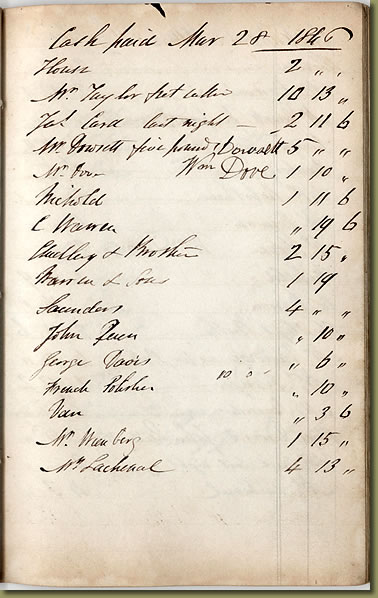 Cash paid Mar 28 1846
House 2 " "
Mr Taylor fret cutter 10 13 "
Jas Card last night — 2 11 6
Mr Dowsett five pounds Dowsett 5 " "
Mr Dove Wm Dove 1 10 "
Nickold 1 11 6
C Warren " 19 6
& Brother 2 15 "
Warren & Sons 1 19
Saunders 4 " "
John " 10 "
George Davis " 6 "
French Polisher " 10 "
Van " 3 6
Mr 1 15 "
Mr Lachenal 4 13 "